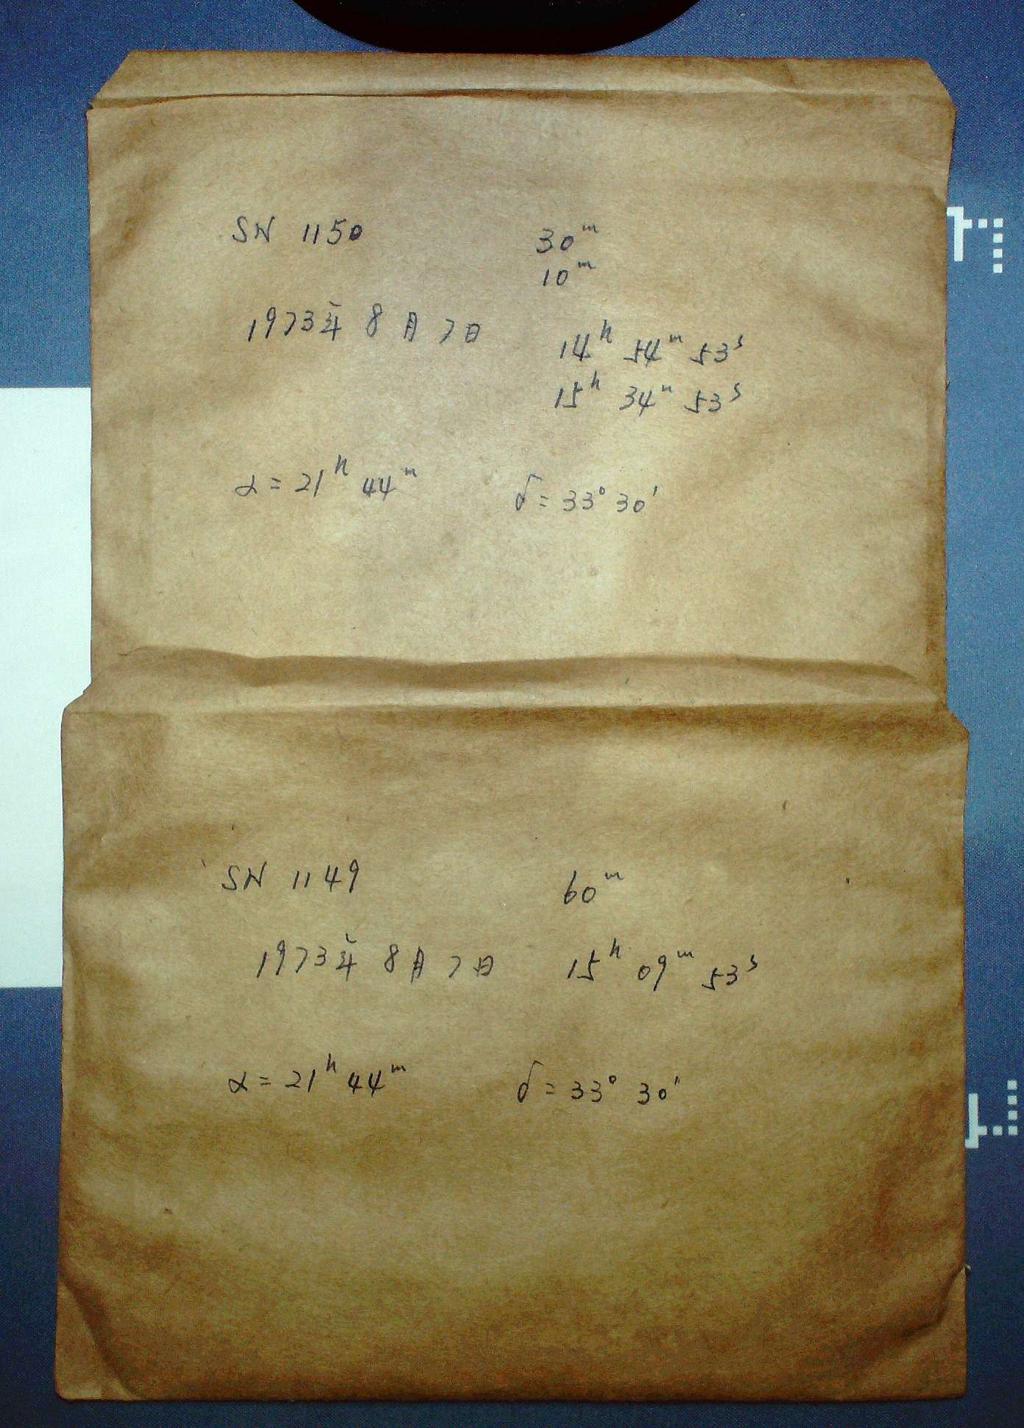 SN 1150
30ᵐ
10ᵐ
1973年 8月 7日
14ʰ 54ᵐ 53ˢ
15ʰ 34ᵐ 53ˢ
α = 21ʰ 44ᵐ
δ = 33° 30′
SN 1149
60ᵐ
1973年 8月 7日
15ʰ 09ᵐ 53ˢ
α = 21ʰ 44ᵐ
δ = 33° 30′